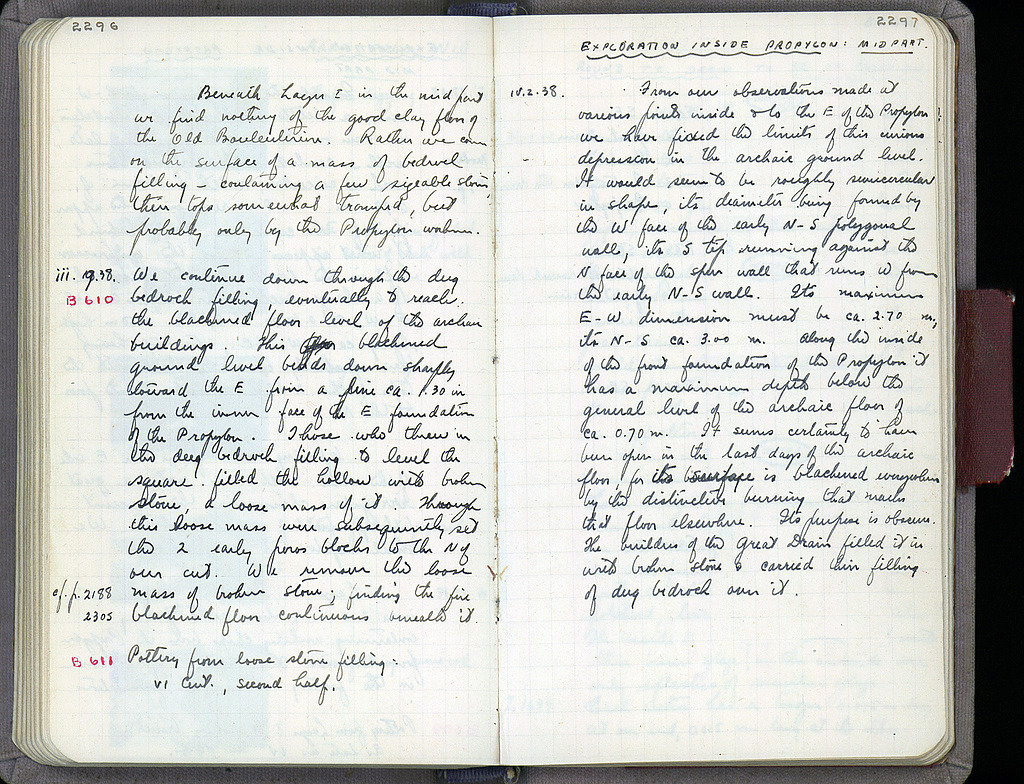 2296
Beneath Layer E in the mid part
we find nothing of the good clay floor of
the Old Bouleuterion. Rather we come
on the surface of a mass of bedrock
filling – containing a few sizeable stones,
their tops somewhat tramped, but
probably only by the Propylon workmen.
iii. 19.38. We continue down through the dug
B 610 bedrock filling, eventually to reach
the blackened floor level of the archaic
buildings. This blackened
ground level bends down sharply
toward the E from a line ca. 1.30 m
from the inner face of the E foundation
of the Propylon. Those who threw in
the dug bedrock filling to level the
square filled the hollow with broken
stone, a loose mass of it. Through
this loose mass were subsequently set
the 2 early poros blocks to the N of
our cut. We remove the loose
cf. p. 2188 mass of broken stone; finding the fire
2305 blackened floor continuous beneath it.
B 611 Pottery from loose stone filling:
VI cent., second half.
2297
EXPLORATION INSIDE PROPYLON: MIDPART.
iv.2.38. From our observations made at
various points inside & to the E of the Propylon
we have fixed the limits of this curious
depression in the archaic ground level.
It would seem to be roughly semicircular
in shape, its diameter being formed by
the W face of the early N-S polygonal
wall, its S tip running against the
N face of the spur wall that runs W from
the early N-S wall. Its maximum
E-W dimension must be ca. 2.70 m,
its N-S ca. 3.00 m. Along the inside
of the front foundation of the Propylon it
has a maximum depth below the
general level of the archaic floor of
ca. 0.70 m. It seems certainly to have
been open in the last days of the archaic
floor, for its surface is blackened everywhere
by the distinctive burning that marks
that floor elsewhere. Its purpose is obscure.
The builders of the Great Drain filled it in
with broken stone & carried their filling
of dug bedrock over it.